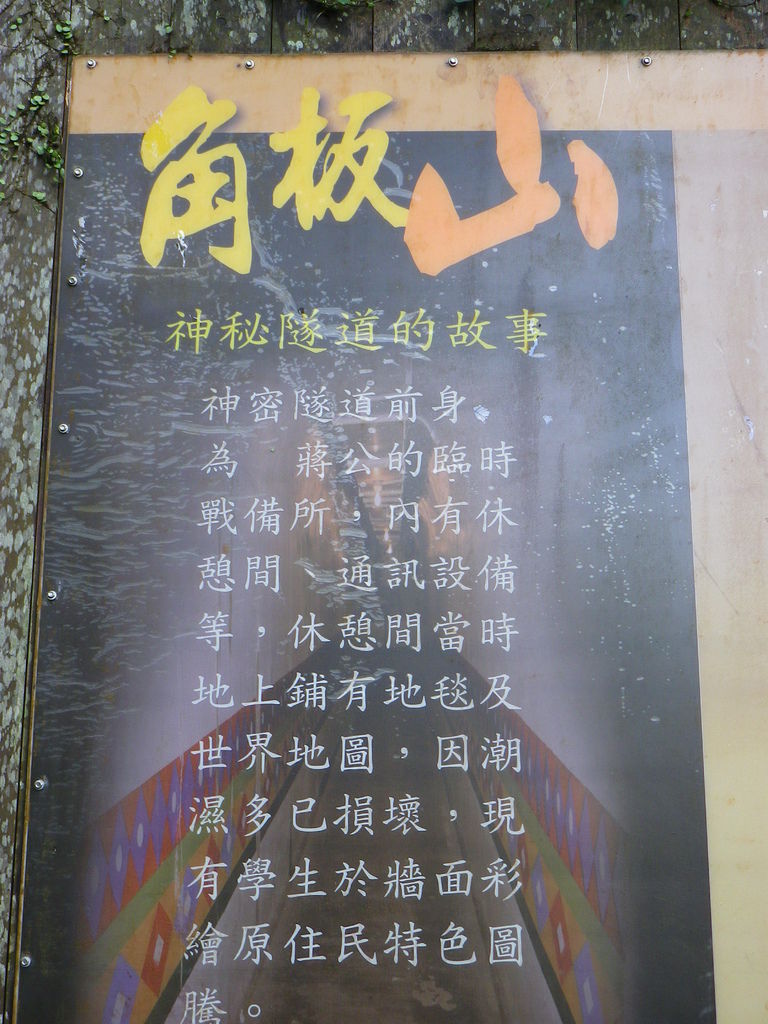 角板山
神秘隧道的故事
神密隧道前身
為　蔣公的臨時
戰備所，內有休
憩間、通訊設備
等，休憩間當時
地上鋪有地毯及
世界地圖，因潮
濕多已損壞，現
有學生於牆面彩
繪原住民特色圖
騰。